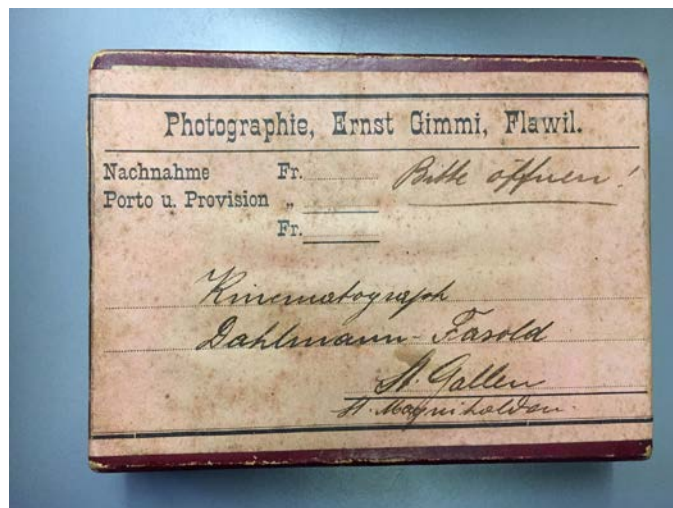 Photographie, Ernst Gimmi, Flawil.
Nachnahme Fr. Bitte öffnen!
Porto u. Provision „
Fr.
Kinematograph
Dahlmann-Fasold
St. Gallen
St. Magnihalden.